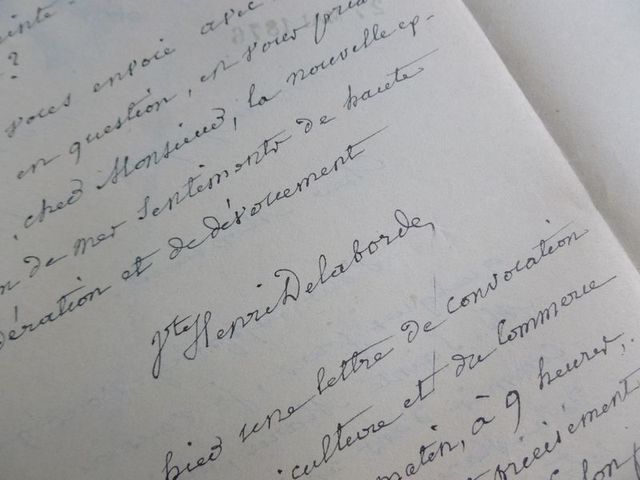 ?
vous envoie avec
en question, en vous pria
cher Monsieur, la nouvelle ep-
n de mes sentiments de haute
dération et de dévouement
Vte Henri Delaborde,
hier une lettre de convocation
iculture et du Commerce
matin, à 9 heures,
précisément